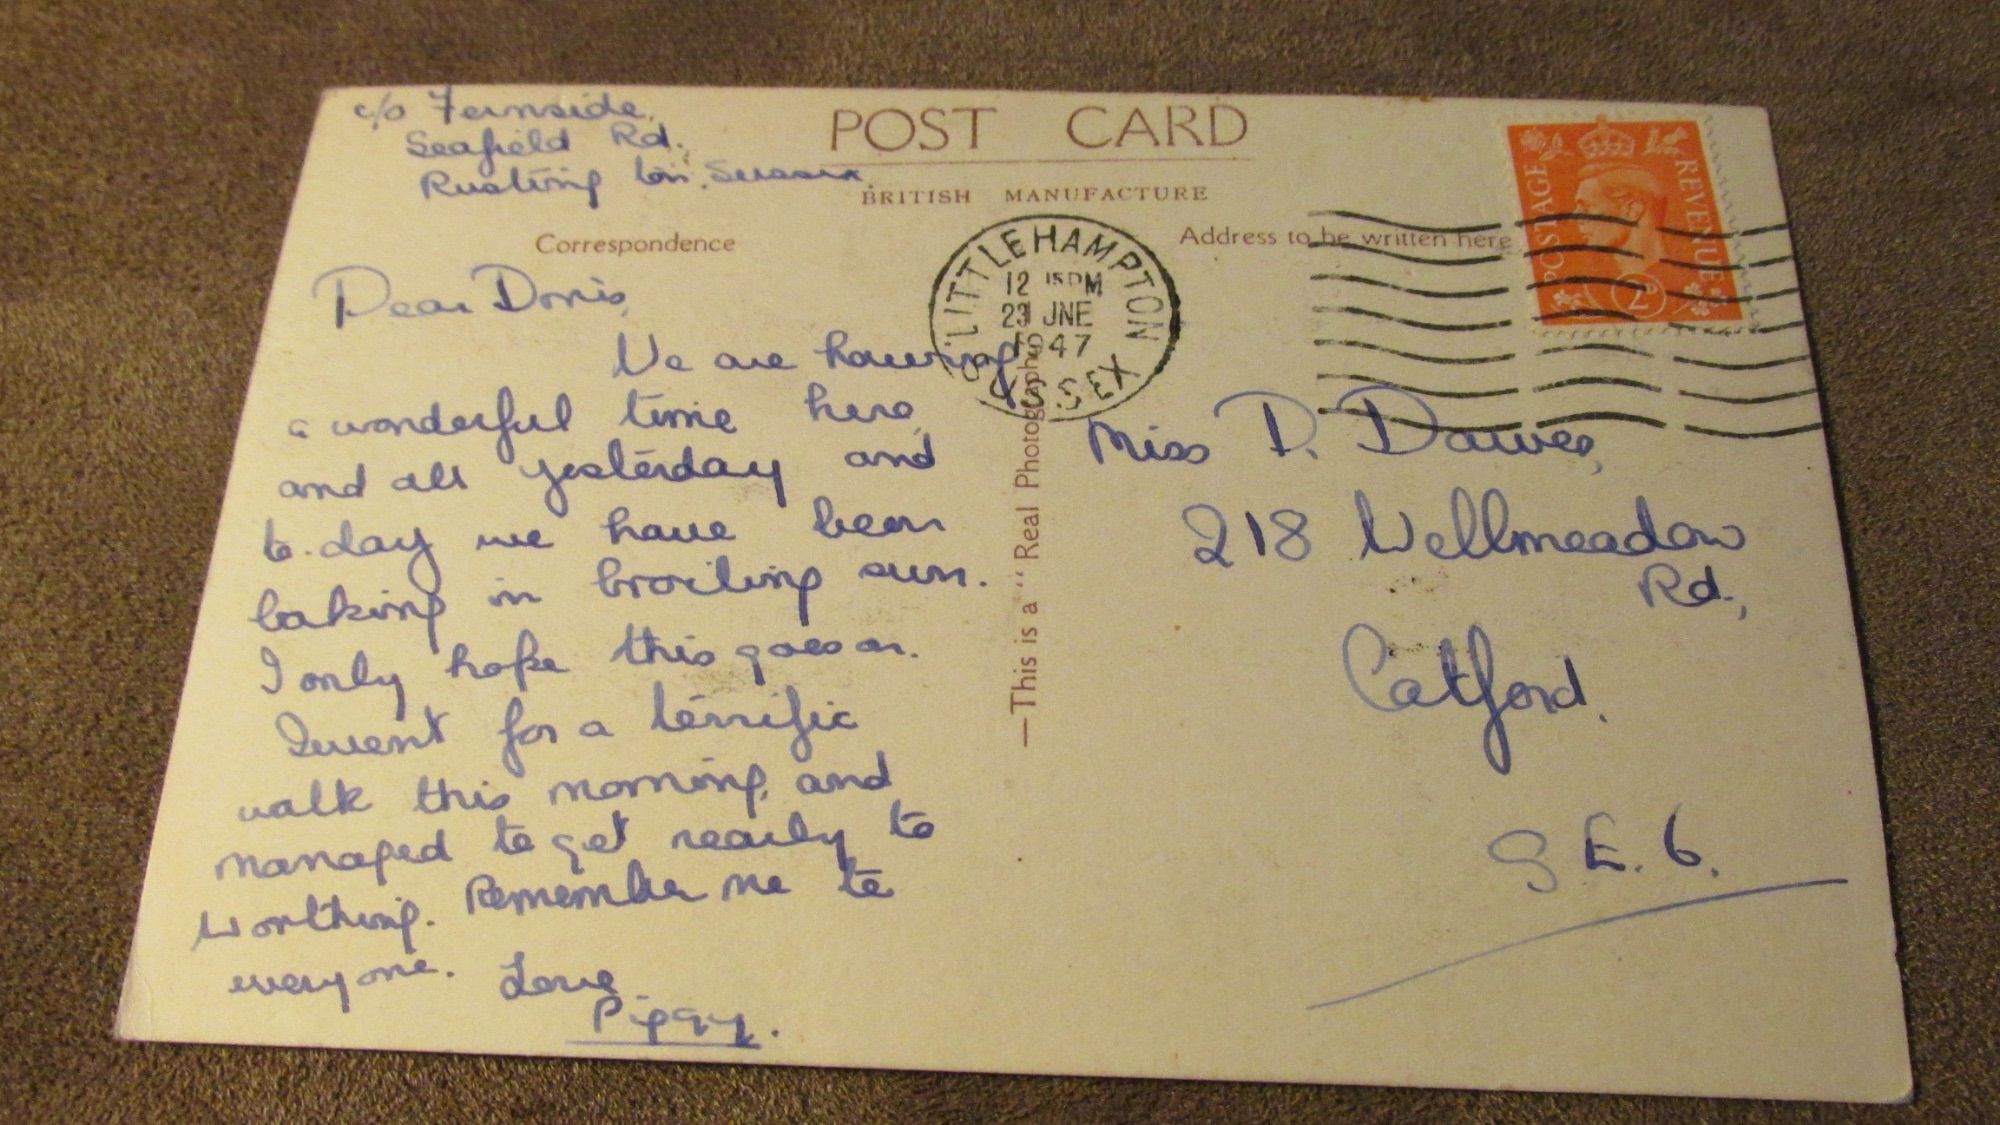 c/o Fernside,
Seafield Rd.,
Rustington. Sussex.
POST CARD
BRITISH MANUFACTURE
Correspondence
Address to be written here
LITTLEHAMPTON
12 15 PM
23 JNE
1947
SUSSEX
POSTAGE
REVENUE
2D
Dear Doris,
We are having
a wonderful time here,
and all yesterday and
to-day we have been
baking in broiling sun.
I only hope this goes on.
I went for a terrific
walk this morning, and
managed to get nearly to
Worthing. Remember me to
everyone. Love
Piggy.
—This is a "Real Photograph"
Miss D. Dawes,
218 Wellmeadow
Rd.,
Catford.
S.E.6.